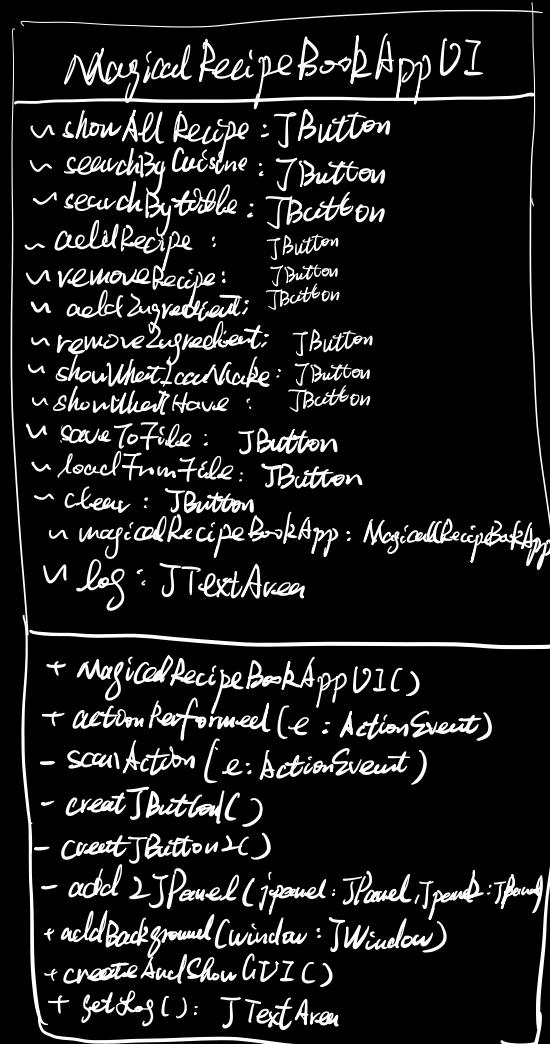 MagicalRecipeBookAppUI
~ showAllRecipe : JButton
~ searchByCuisine : JButton
~ searchBytitle : JButton
~ addRecipe : JButton
~ removeRecipe : JButton
~ addIngredient : JButton
~ removeIngredient : JButton
~ showWhatIcanMake : JButton
~ showWhatIHave : JButton
~ saveToFile : JButton
~ loadFromFile : JButton
~ clear : JButton
~ magicalRecipeBookApp : MagicalRecipeBookApp
~ log : JTextArea
+ MagicalRecipeBookAppUI()
+ actionPerformed(e : ActionEvent)
- scanAction(e : ActionEvent)
- creatJButton1()
- creatJButton2()
- add2JPanel(jpanel : JPanel, Jpanel2 : JPanel)
+ addBackground(window : JWindow)
+ createAndShowGUI()
+ getLog() : JTextArea